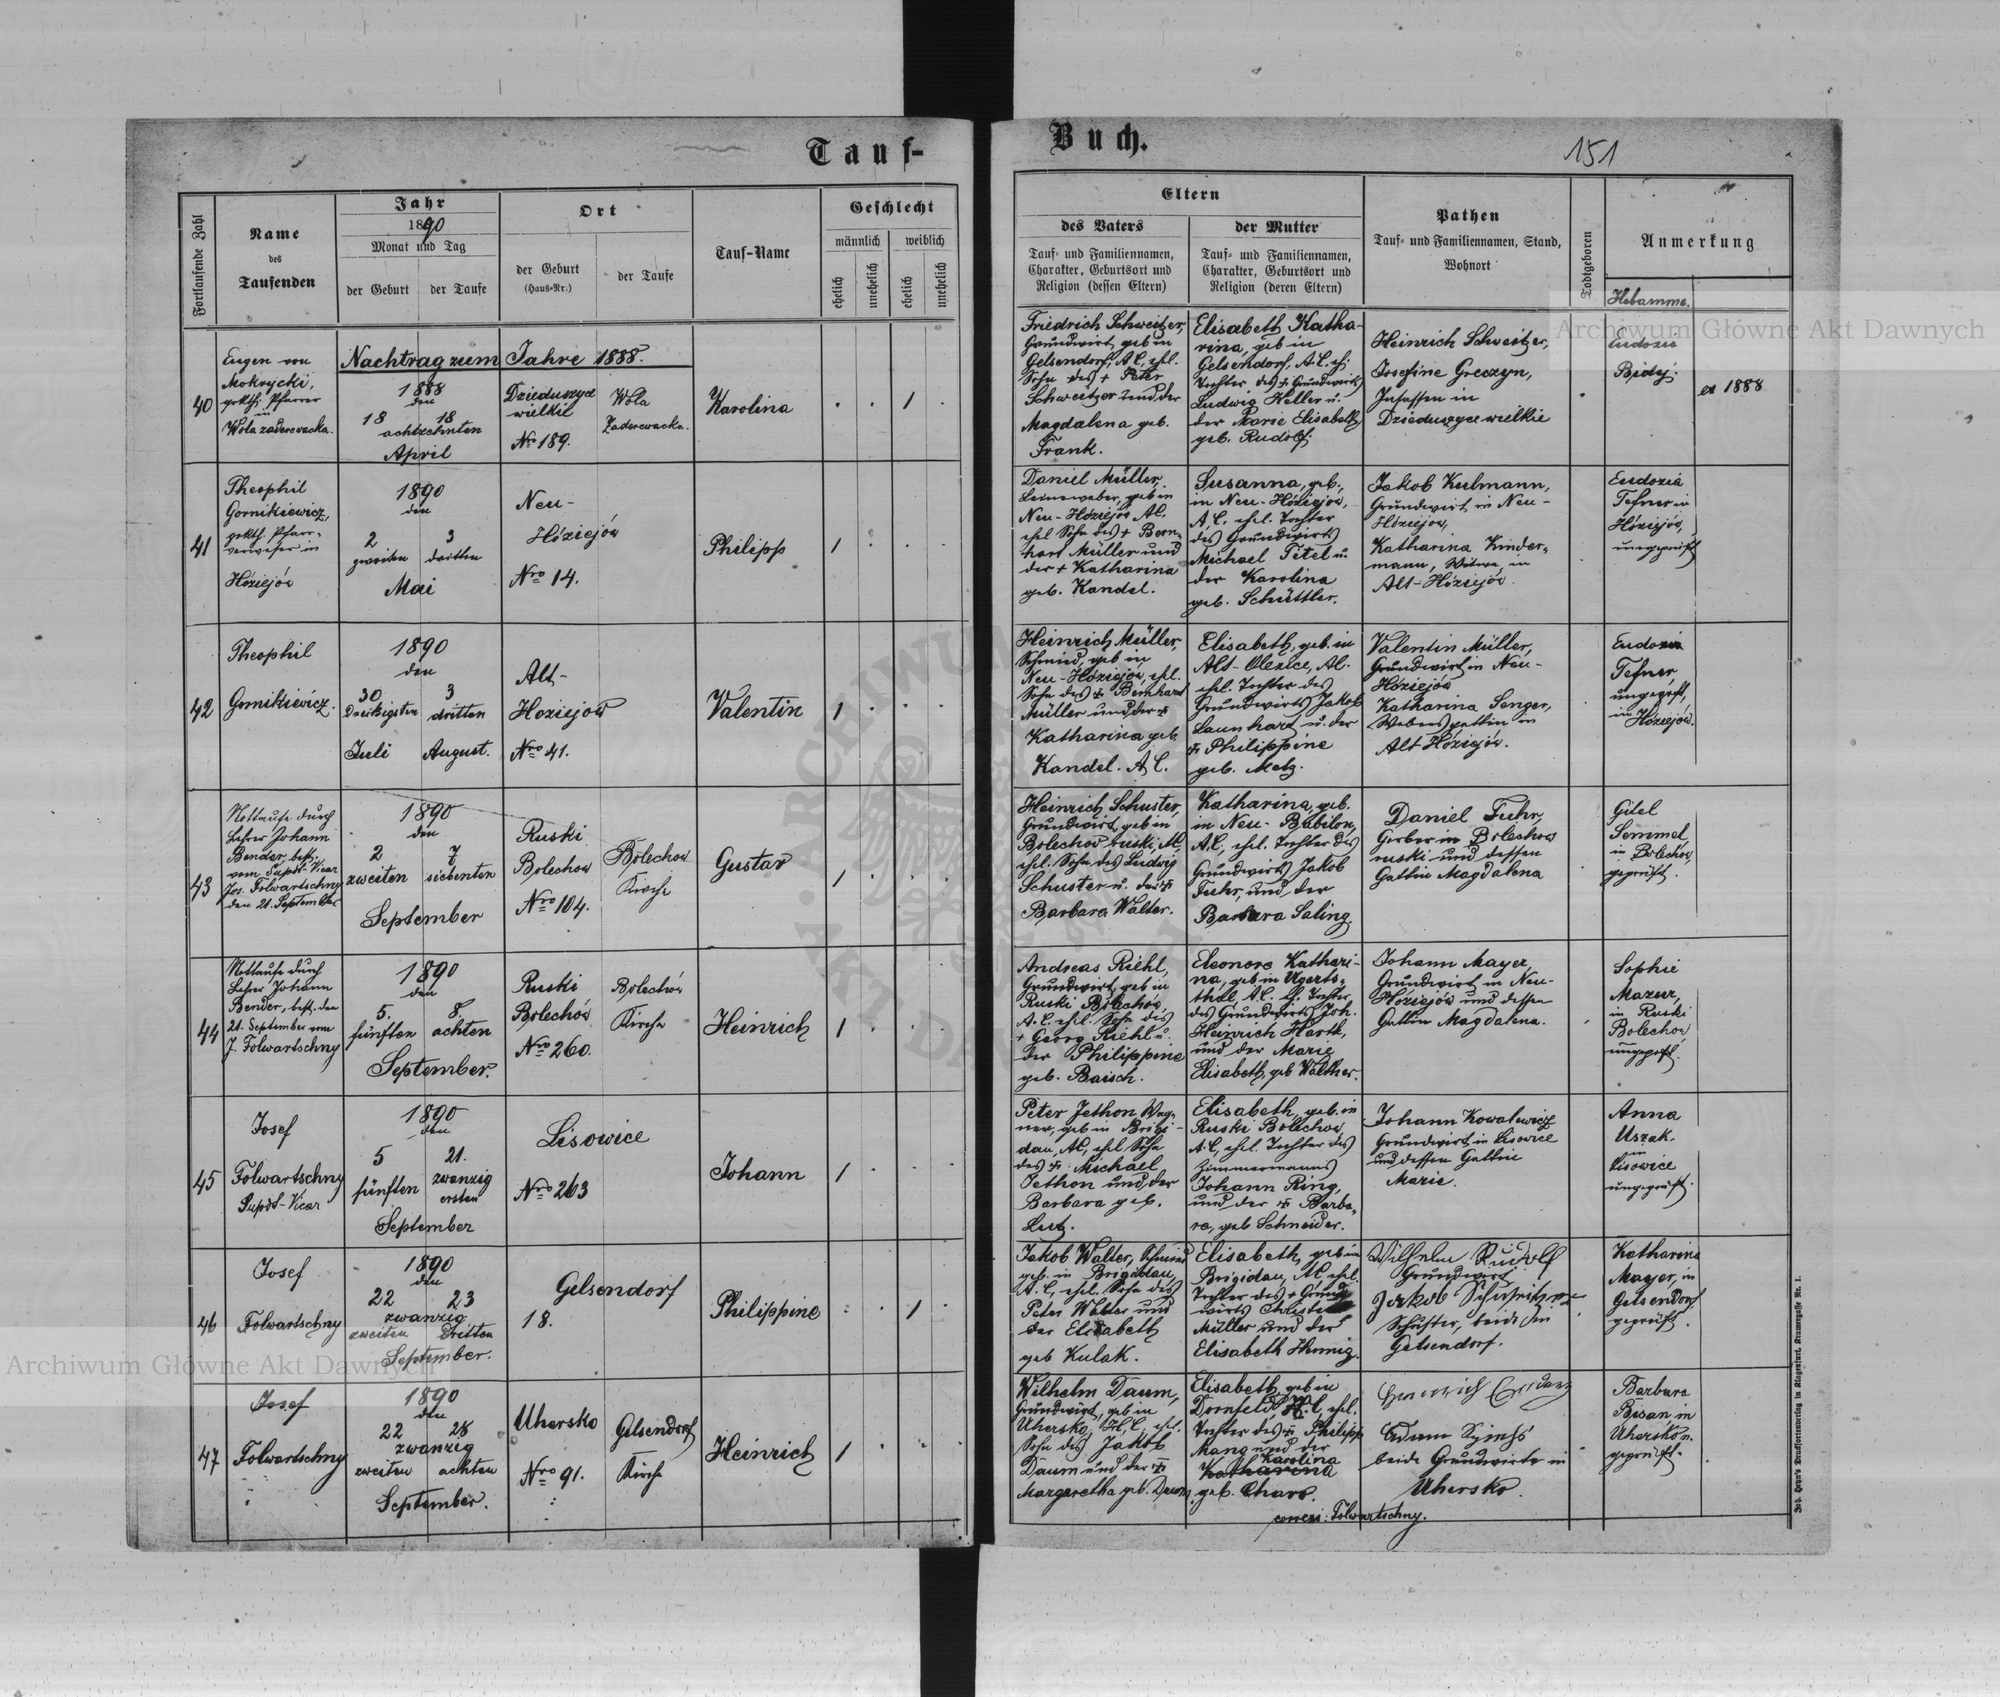 Tauf-
Buch.
151
Fortlaufende Zahl
Name
des
Taufenden
Jahr
1890
Monat und Tag
der Geburt
der Taufe
Ort
der Geburt
(Haus-Nr.)
der Taufe
Tauf-Name
Geschlecht
männlich
weiblich
ehelich
unehelich
ehelich
unehelich
Eltern
des Vaters
Tauf- und Familiennamen,
Charakter, Geburtsort und
Religion (dessen Eltern)
der Mutter
Tauf- und Familiennamen,
Charakter, Geburtsort und
Religion (deren Eltern)
Pathen
Tauf- und Familiennamen, Stand,
Wohnort
Todtgeboren
Anmerkung
Hebamme.
Nachtrag zum Jahre 1888.
40
Eugen von
Mokrycki,
grkth. Pfarrer
in
Wola zaderewacka.
1888
den
18 18
achtzehnten
April
Dzieduszyce
wielkie
Nro 189.
Wola
Zaderewacka.
Karolina
1
Friedrich Schweitzer,
Grundwirt, geb in
Gelsendorf, A.C., ehl.
Sohn des + Peter
Schweitzer und der
Magdalena geb.
Frank.
Elisabeth Katha-
rina, geb in
Gelsendorf, A.C. eh.
Tochter des + Grundwirts
Ludwig Keller u.
der Marie Elisabeth
geb. Rudolf.
Heinrich Schweitzer,
Josefine Greczyn,
Insassen in
Dzieduszyce wielkie
Eudozia
Bidy.
ex 1888
41
Theophil
Gornikiewicz,
grkth. Pfarr-
verweser in
Hóziejów
1890
den
2 3
zweiten dritten
Mai
Neu-
Hóziejów
Nro 14.
Philipp
1
Daniel Müller,
Leineweber, geb in
Neu-Hóziejów, AC.
ehl Sohn des + Bern-
hart Müller und
der + Katharina
geb. Kandel.
Susanna, geb.,
in Neu-Hóziejów,
A.C. ehel. Tochter
des Grundwirts
Michael Tetel u.
der Karolina
geb. Schüttler.
Jakob Kulmann,
Grundwirt in Neu-
Hóziejow,
Katharina Kinder-
mann, Witwe, in
Alt-Hóziejów.
Eudozia
Tefner in
Hóziejów,
ungeprüft
42
Theophil
Gornikiewicz.
1890
den
30 3
Dreißigsten dritten
Juli August.
Alt-
Hoziejow
Nro 41.
Valentin
1
Heinrich Müller,
Schmied, geb in
Neu-Hóziejów, ehl.
Sohn des + Bernhard
Müller und der +
Katharina geb
Kandel. A.C.
Elisabeth, geb. in
Alt-Olezice, AC.
ehel. Tochter des
Grundwirts Jakob
Launhart u. der
+ Philippine
geb. Metz.
Valentin Müller,
Grundwirt in Neu-
Hóziejów
Katharina Senger,
Webersgattin in
Alt Hóziejów.
Eudozia
Tefner,
ungeprüft,
in Hóziejów.
43
Nottaufe durch
Lehrer Johann
Bender, best.
vom Supdt-Vicar
Jos. Folwartschny
den 21. September
1890
den
2 7
zweiten siebenten
September
Ruski
Bolechow
Nro 104.
Bolechow
Kirche
Gustav
1
Heinrich Schuster,
Grundwirt, geb in
Bolechow ruski, AC,
ehel. Sohn des Ludwig
Schuster u. der +
Barbara Walter.
Katharina, geb.
in Neu-Babilon,
A.C., ehel. Tochter des
Grundwirts Jakob
Fuhr, und der
Barbara Saling.
Daniel Fuhr,
Gerber in Bolechow
ruski und dessen
Gattin Magdalena
Gitel
Semmel,
in Bolechow,
geprüft.
44
Nottaufe durch
Lehrer Johann
Bender, best. den
21. September vom
J. Folwartschny
1890
den
5. 8.
fünften achten
September.
Ruski
Bolechów
Nro 260.
Bolechów
Kirche
Heinrich
1
Andreas Riehl,
Grundwirt, geb in
Ruski Bolechów,
A.C. ehel. Sohn des
+ Georg Riehl u.
der Philippine
geb. Baisch.
Eleonore Kathari-
na, geb in Ugarts-
thal, A.C. eh. Tochter
des Grundwirts Joh.
Heinrich Hartk,
und der Marie
Elisabeth geb Walther.
Johann Mayer,
Grundwirt in Neu-
Hóziejów und dessen
Gattin Magdalena.
Sophie
Mazur,
in Ruski
Bolechow,
ungeprft.
45
Josef
Folwartschny
Supdt-Vicar
1890
den
5 21.
fünften zwanzig
ersten
September
Lisowice
Nro 263
Johann
1
Peter Jethon Wag-
ner, geb in Brigi-
dau, AC, ehel Sohn
des + Michael
Jethon und der
Barbara geb.
Lutz.
Elisabeth, geb. in
Ruski Bolechow,
A.C, ehel. Tochter des
Zimmermanns
Johann Ring,
und der + Barba-
ra, geb Schneider.
Johann Kowalewicz
Grundwirt in Lisowice
und dessen Gattin
Marie.
Anna
Uszak.
in
Lisowice
ungeprüft.
46
Josef
Folwartschny
1890
den
22 23
zwanzig
zweiten Dritten
September.
Gelsendorf
18.
Philippine
1
Jakob Walter, Schmied
geb. in Brigidau,
A.C, ehel. Sohn des
Peter Walter und
der Elisabeth
geb Kulak.
Elisabeth, geb in
Brigidau, AC ehel.
Tochter des + Grund
wirts
Müller und der
Elisabeth Hunnig.
Wilhelm Rudolf
Grundwirt
Jakob Schweitzer
Schuster, beide in
Gelsendorf.
Katharina
Mayer, in
Gelsendorf
geprüft.
47
Josef
Folwartschny
1890
den
22 28
zwanzig
zweiten achten
September.
Uhersko
Nro 91.
Gelsendorf
Kirche
Heinrich
1
Wilhelm Daum,
Grundwirt, geb in
Uhersko, H.C, ehl.
Sohn des Jakob
Daum und der +
Margaretha geb. Daum
Elisabeth, geb in
Dornfeld H.C, ehel.
Tochter des + Philipp
Mang und der
Karolina
Katharina
geb. Charo.
correxi: Folwartschny.
Heinrich
Adam
beide Grundwirte in
Uhersko.
Barbara
Bisan, in
Uhersko
geprüft.
Joh. Leon's Drucksortenverlag in Klagenfurt, Kramergasse Nr. 1.
Archiwum Główne Akt Dawnych
Archiwum Główne Akt Dawnych